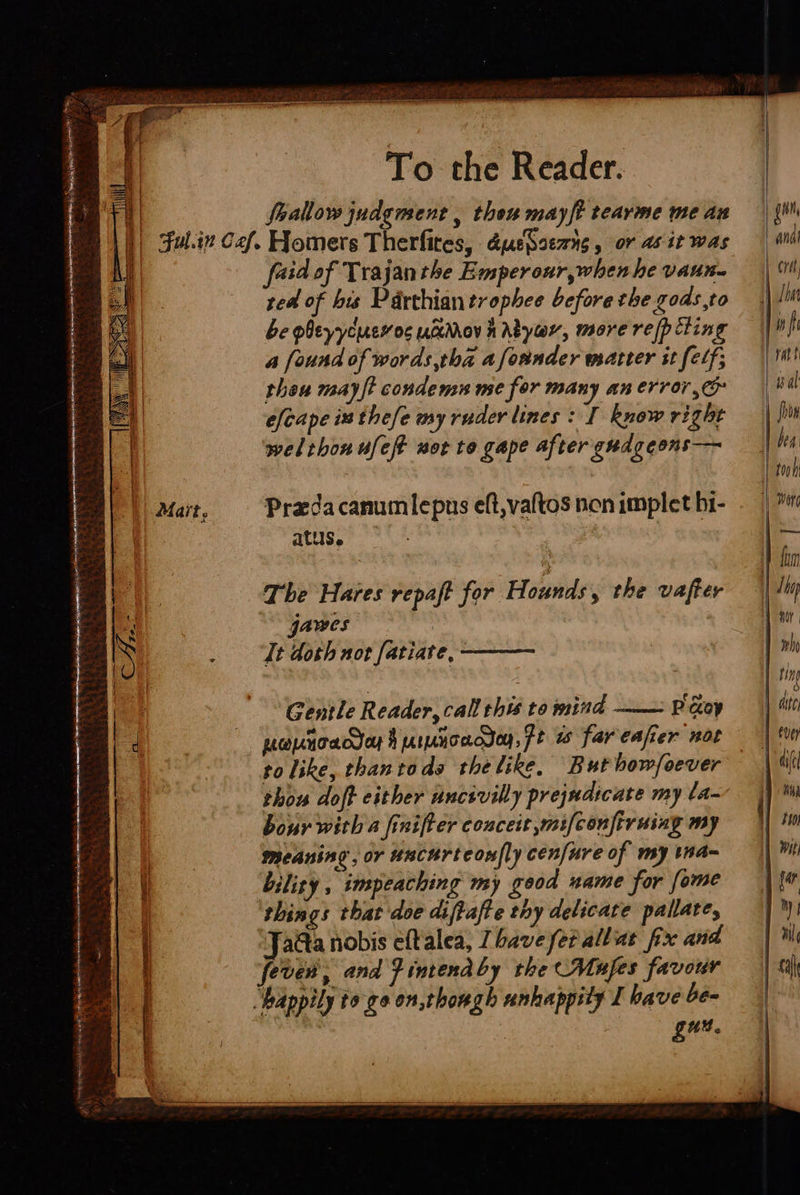 To the Reader.
ſhallow judgment, thou mayſt tearme me an
Jul. in Cæſ. Homers Therſites, ἀμετροεπὴς, or as it was
ſaid of Trajan the Emperour, when he vaun-
ted of his Parthian trophee before the gods, to
be φθεγγόμενος μᾶλλον ἢ λέγων, more reſpecting
a ſound of words, thā a ſounder matter it ſelf;
thou mayſt condemn me for many an error, &
eſcape in theſe my ruder lines : I know right
wel thou uſeſt not to gape after gudgeons—
Mart. Præda canum lepus eſt, vaſtos non implet hi-
atus.
The Hares repaſt for Hounds, the vaſter
jawes
It doth not ſatiate, ———
Gentle Reader, call this to mind —— ῥᾷον
μωμήσασθαι ἢ μιμήσασθαι, It is far eaſier not
to like, than to do the like. But howſoever
thou doſt either uncivilly prejudicate my la-
bour with a ſiniſter conceit, miſconſtruing my
meaning, or uncurteouſly cenſure of my ina-
bility, impeaching my good name for ſome
things that doe diſtaſte thy delicate pallate,
Jacta nobis eſt alea, I have ſet all at ſix and
ſeven, and I intend by the Muſes favour
happily to go on, though unhappily I have be-
gun.